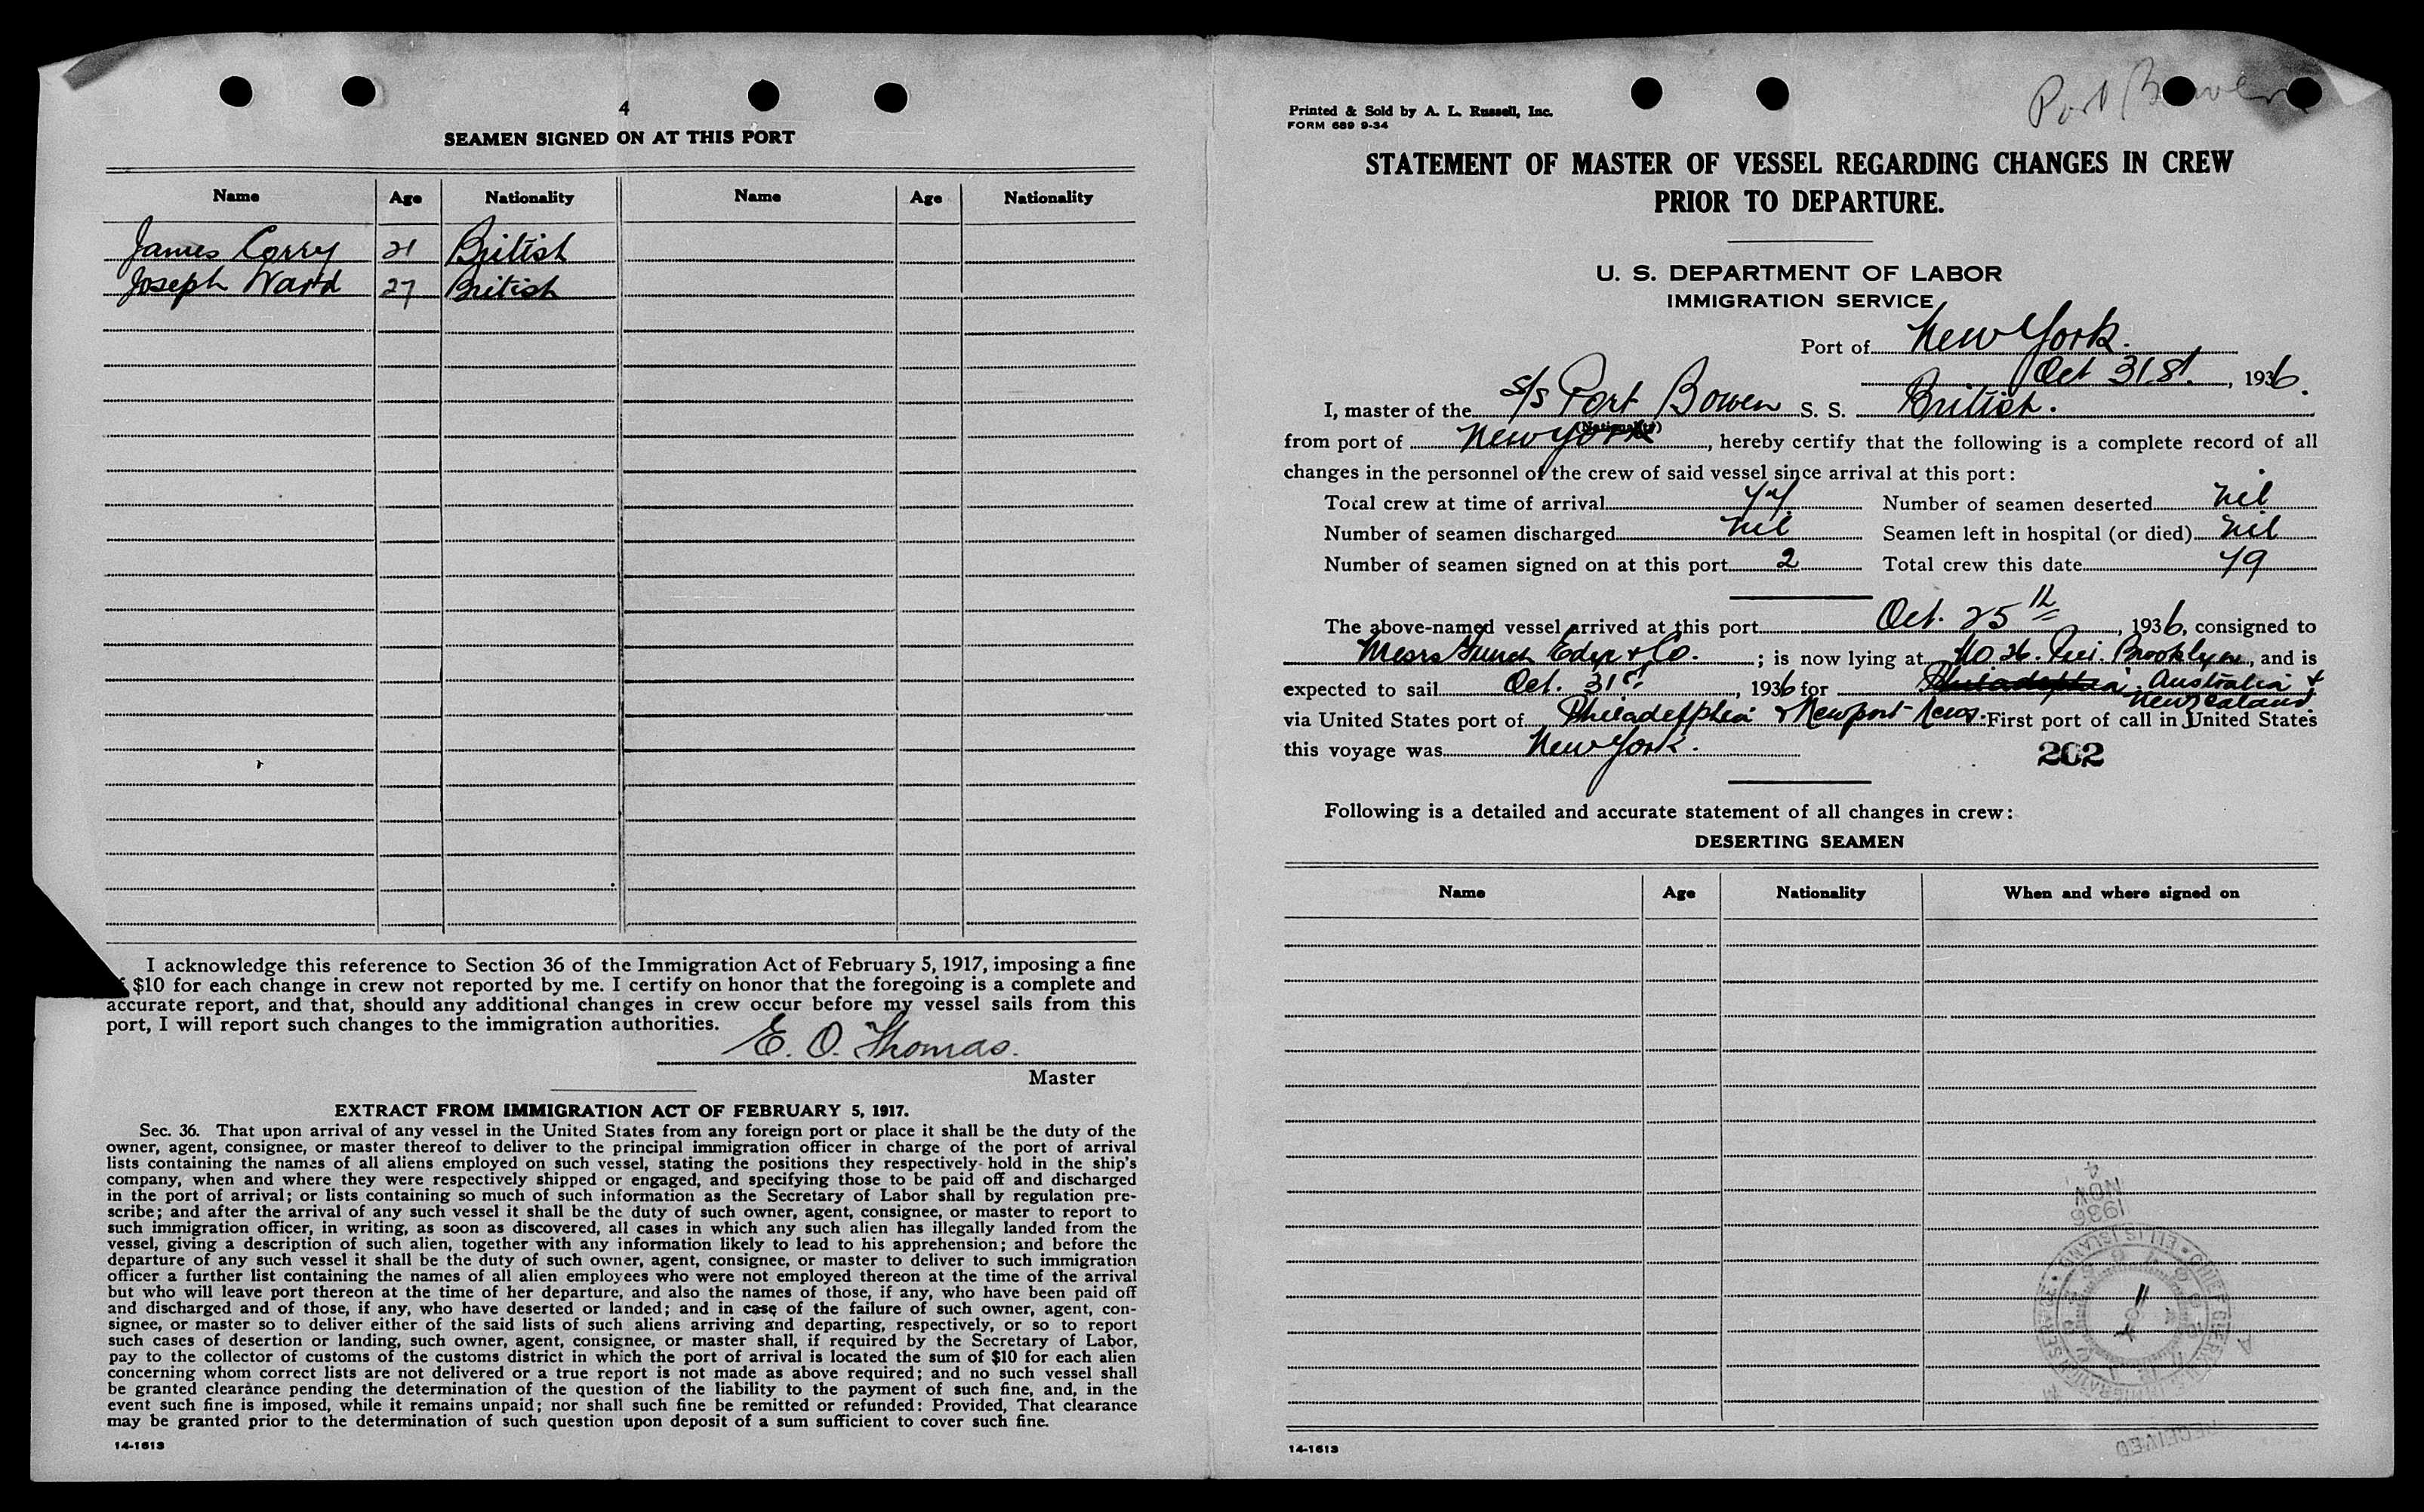 4
SEAMEN SIGNED ON AT THIS PORT
Name Age Nationality Name Age Nationality
James Corry 21 British
Joseph Ward 27 British
I acknowledge this reference to Section 36 of the Immigration Act of February 5, 1917, imposing a fine
$10 for each change in crew not reported by me. I certify on honor that the foregoing is a complete and
accurate report, and that, should any additional changes in crew occur before my vessel sails from this
port, I will report such changes to the immigration authorities.
E. O. Thomas.
Master
EXTRACT FROM IMMIGRATION ACT OF FEBRUARY 5, 1917.
Sec. 36. That upon arrival of any vessel in the United States from any foreign port or place it shall be the duty of the
owner, agent, consignee, or master thereof to deliver to the principal immigration officer in charge of the port of arrival
lists containing the names of all aliens employed on such vessel, stating the positions they respectively hold in the ship's
company, when and where they were respectively shipped or engaged, and specifying those to be paid off and discharged
in the port of arrival; or lists containing so much of such information as the Secretary of Labor shall by regulation pre-
scribe; and after the arrival of any such vessel it shall be the duty of such owner, agent, consignee, or master to report to
such immigration officer, in writing, as soon as discovered, all cases in which any such alien has illegally landed from the
vessel, giving a description of such alien, together with any information likely to lead to his apprehension; and before the
departure of any such vessel it shall be the duty of such owner, agent, consignee, or master to deliver to such immigration
officer a further list containing the names of all alien employees who were not employed thereon at the time of the arrival
but who will leave port thereon at the time of her departure, and also the names of those, if any, who have been paid off
and discharged and of those, if any, who have deserted or landed; and in case of the failure of such owner, agent, con-
signee, or master so to deliver either of the said lists of such aliens arriving and departing, respectively, or so to report
such cases of desertion or landing, such owner, agent, consignee, or master shall, if required by the Secretary of Labor,
pay to the collector of customs of the customs district in which the port of arrival is located the sum of $10 for each alien
concerning whom correct lists are not delivered or a true report is not made as above required; and no such vessel shall
be granted clearance pending the determination of the question of the liability to the payment of such fine, and, in the
event such fine is imposed, while it remains unpaid; nor shall such fine be remitted or refunded: Provided, That clearance
may be granted prior to the determination of such question upon deposit of a sum sufficient to cover such fine.
14-1613
Port Bowen
Printed & Sold by A. L. Russell, Inc.
FORM 689 9-34
STATEMENT OF MASTER OF VESSEL REGARDING CHANGES IN CREW
PRIOR TO DEPARTURE.
U. S. DEPARTMENT OF LABOR
IMMIGRATION SERVICE
Port of New York.
Oct 31st., 1936.
I, master of the s/s Port Bowen S. S. British.
(Nationality)
from port of New York, hereby certify that the following is a complete record of all
changes in the personnel of the crew of said vessel since arrival at this port:
Total crew at time of arrival 77 Number of seamen deserted nil
Number of seamen discharged nil Seamen left in hospital (or died) nil
Number of seamen signed on at this port 2 Total crew this date 79
The above-named vessel arrived at this port Oct. 25th, 1936, consigned to
Messrs Edye & Co. ; is now lying at No 26. Brooklyn, and is
expected to sail Oct. 31st, 1936 for Philadelphia Australia &
New Zealand.
via United States port of Philadelphia & Newport News. First port of call in United States
this voyage was New York.
202
Following is a detailed and accurate statement of all changes in crew:
DESERTING SEAMEN
Name Age Nationality When and where signed on
1936
NOV
4
CHIEF CLERK U.S. IMMIGRATION SERVICE ELLIS ISLAND
RECEIVED
14-1613